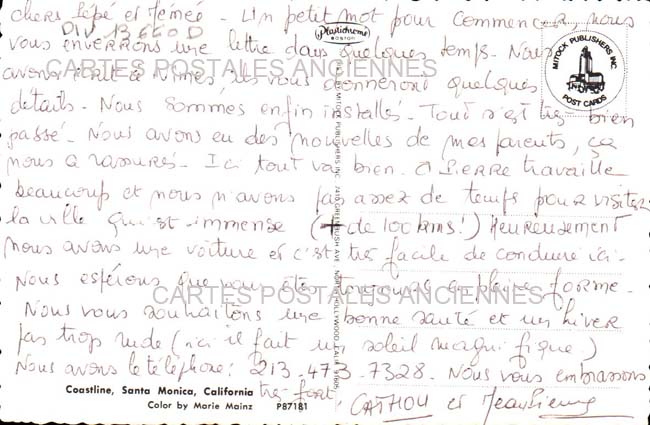 chers Pépé et Mémée - Un petit mot pour commencer nous
DIV 13660D
vous enverrons une lettre dans quelques temps. Nous
avons écrit à Nîmes ils vous donneront quelques
détails - Nous sommes enfin installés - Tout s'est très bien
passé - Nous avons eu des nouvelles de mes parents, ça
nous a rassurés - Ici tout va bien. Pierre travaille
beaucoup et nous n'avons pas assez de temps pour visiter
la ville qui est immense (+ de 100 kms!) Heureusement
nous avons une voiture et c'est très facile de conduire ici -
Nous espérons que vous êtes toujours en pleine forme -
Nous vous souhaitons une bonne santé et un hiver
pas trop rude (ici il fait un soleil magnifique)
Nous avons le téléphone: 213-473-7328. Nous vous embrassons
très fort. CATHOU et Jean Pierre
Plastichrome
BOSTON
MITOCK PUBLISHERS INC.
POST CARDS
CARTES POSTALES ANCIENNES
CARTES POSTALES ANCIENNES
Coastline, Santa Monica, California
Color by Marie Mainz P87181